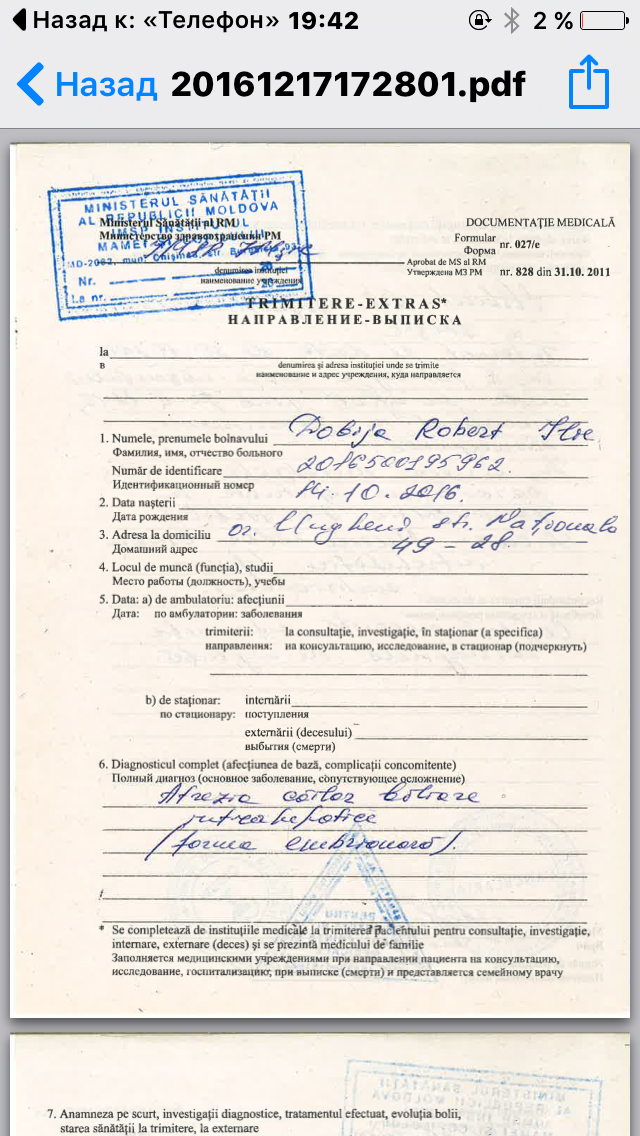 Назад к: «Телефон» 19:42 2 %
Назад 20161217172801.pdf
MINISTERUL SĂNĂTĂȚII
AL REPUBLICII MOLDOVA
IMSP INSTITUTUL
MAMEI
MD-2062, mun. Chișinău, str. Burebista, 93
Nr. 20
La nr. 20
Ministerul Sănătăţii al RM
Министерство здравоохранения РМ
denumirea instituţiei
наименование учреждения
DOCUMENTAŢIE MEDICALĂ
Formular
Форма nr. 027/e
Aprobat de MS al RM
Утверждена МЗ РМ nr. 828 din 31.10. 2011
TRIMITERE-EXTRAS*
НАПРАВЛЕНИЕ-ВЫПИСКА
la
в
denumirea şi adresa instituţiei unde se trimite
наименование и адрес учреждения, куда направляется
1. Numele, prenumele bolnavului Dobija Robert Ilie
Фамилия, имя, отчество больного
Număr de identificare 2016500195962.
Идентификационный номер
2. Data naşterii 14.10.2016.
Дата рождения
3. Adresa la domiciliu or. Ungheni str. Naţionala
Домашний адрес 49-28.
4. Locul de muncă (funcţia), studii
Место работы (должность), учебы
5. Data: a) de ambulatoriu: afecţiunii
Дата: по амбулатории: заболевания
trimiterii: la consultaţie, investigaţie, în staţionar (a specifica)
направления: на консультацию, исследование, в стационар (подчеркнуть)
b) de staţionar: internării
по стационару: поступления
externării (decesului)
выбытия (смерти)
6. Diagnosticul complet (afecţiunea de bază, complicaţii concomitente)
Полный диагноз (основное заболевание, сопутствующее осложнение)
Atrezia cailor biliare
intrahepatice
(forma embrionară).
* Se completează de instituţiile medicale la trimiterea pacientului pentru consultaţie, investigaţie,
internare, externare (deces) şi se prezintă medicului de familie
Заполняется медицинскими учреждениями при направлении пациента на консультацию,
исследование, госпитализацию, при выписке (смерти) и представляется семейному врачу
7. Anamneza pe scurt, investigaţii diagnostice, tratamentul efectuat, evoluţia bolii,
starea sănătăţii la trimitere, la externare